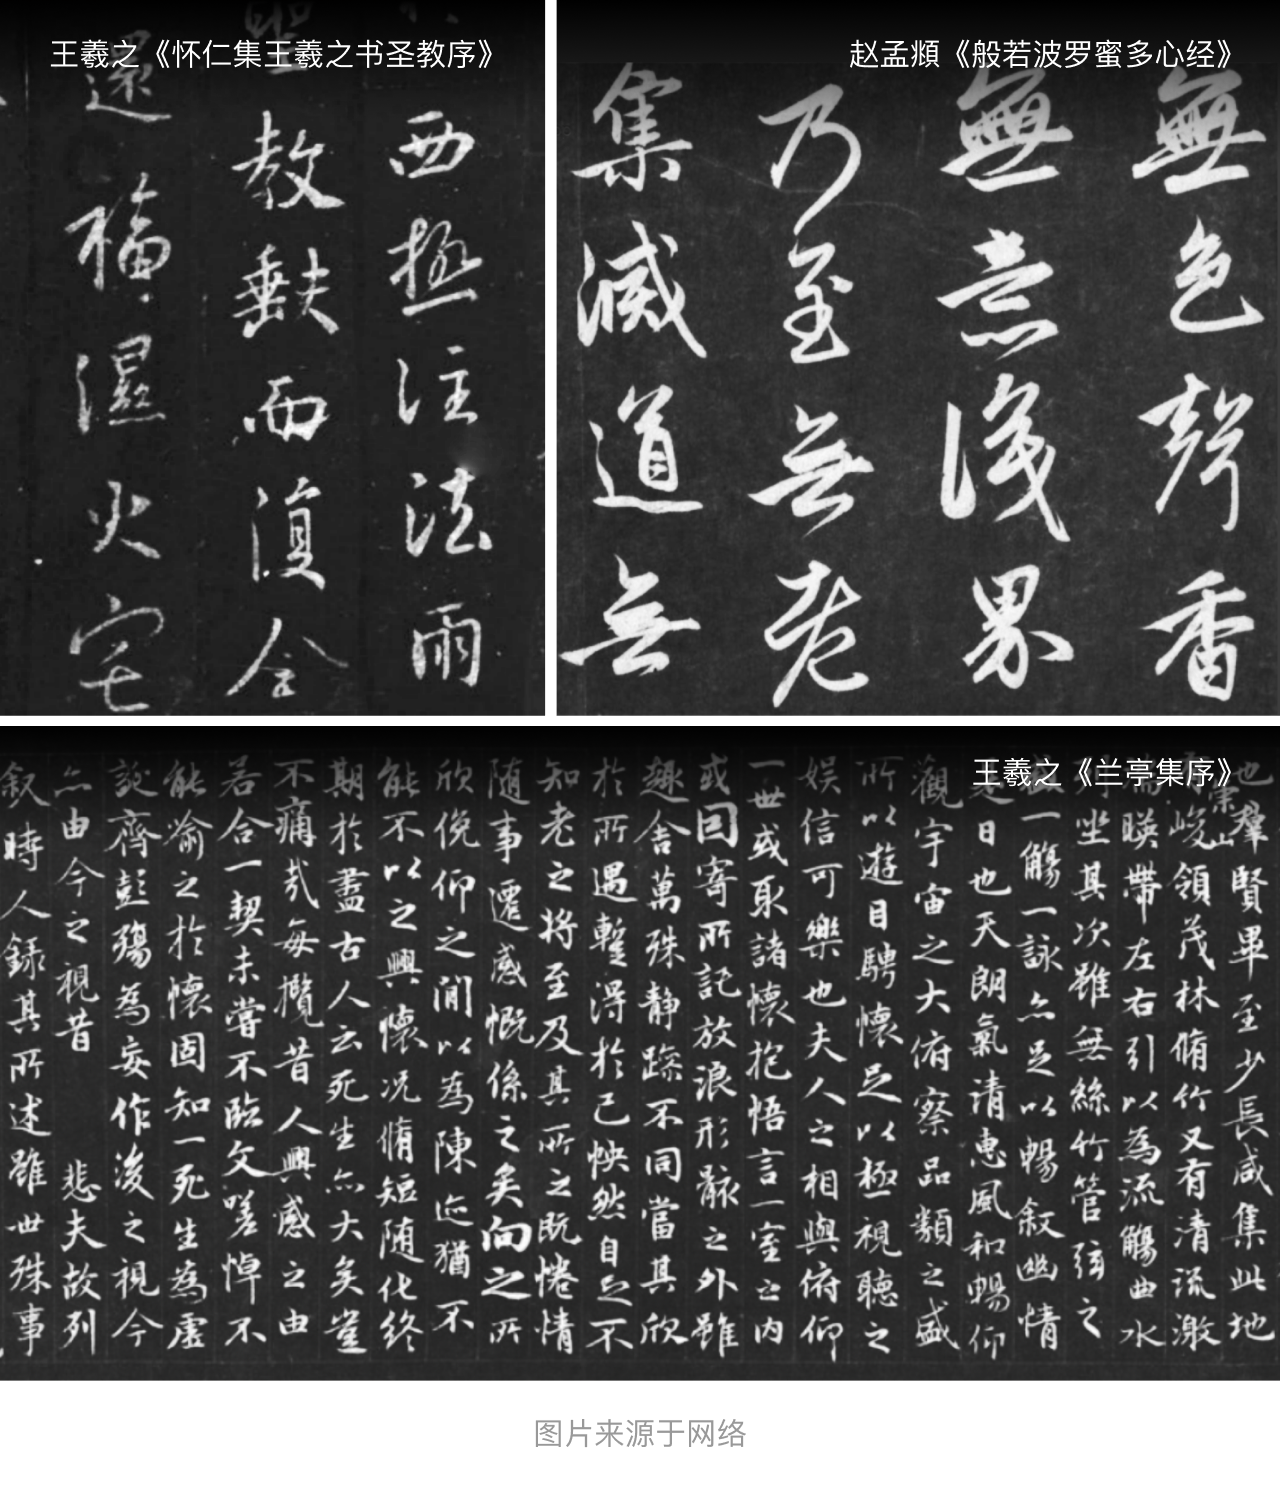 王羲之《怀仁集王羲之书圣教序》
西極注法雨
聖教缺而復全
還福濕火宅
赵孟頫《般若波罗蜜多心经》
無色聲香
無意識界
乃至無老
集滅道無
王羲之《兰亭集序》
也羣賢畢至少長咸集此地
崇山
峻領茂林脩竹又有清流激
湍暎帶左右引以為流觴曲水
坐其次雖無絲竹管弦之
一觴一詠亦足以暢叙幽情
是日也天朗氣清惠風和暢仰
觀宇宙之大俯察品類之盛
所以遊目騁懷足以極視聽之
娛信可樂也夫人之相與俯仰
一世或取諸懷抱悟言一室之內
或因寄所託放浪形骸之外雖
趣舍萬殊静躁不同當其欣
於所遇蹔得於己怏然自足不
知老之將至及其所之既惓情
随事遷感慨係之矣向之所
欣俛仰之閒以為陳迹猶不
能不以之興懷况脩短随化終
期於盡古人云死生亦大矣豈
不痛哉每攬昔人興感之由
若合一契未嘗不臨文嗟悼不
能喻之於懷固知一死生為虛
誕齊彭殤為妄作後之視今
亦由今之視昔 悲夫故列
叙時人錄其所述雖世殊事
图片来源于网络